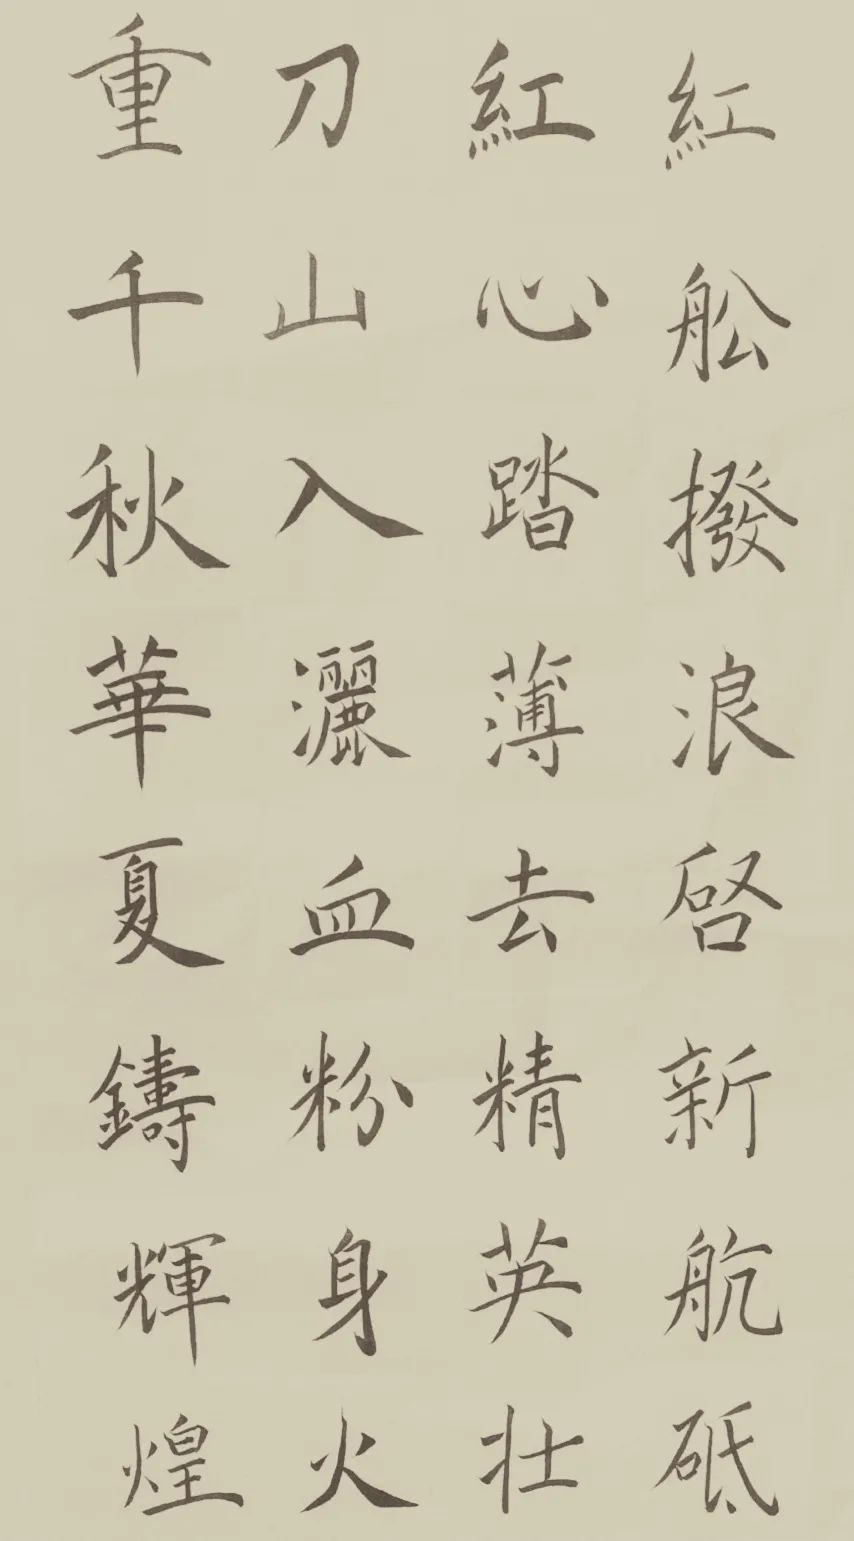 紅舩撥浪啓新航砥
紅心踏薄去精英壯
刀山入灑血粉身火
重千秋華夏鑄輝煌